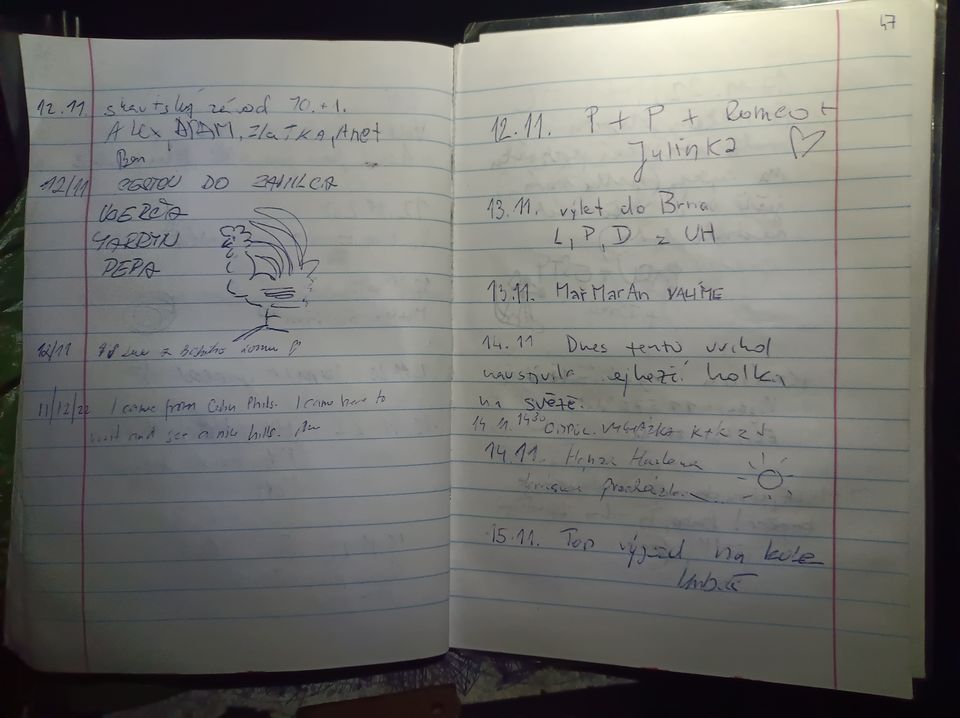 12.11. skautský závod 10.+1.
ALEX, ADAM, ZlaTKA, Anet
Ben
12/11 CESTOU DO
VERČA
MARTYN
PEPA
12/11
11/12/22 I came from Cebu Phils. I came here to
and see a nice hills.
47
12.11. P + P + Romeo +
Julinka
13.11. výlet do Brna
L, P, D z UH
13.11. MařMarAn VALÍME
14.11 Dnes tento vrchol
navštívila nejhezčí holka
na světě.
14.11. 14:30 K+K z J
14.11. Honza
procházka
15.11. Top výjezd na kole
Kuba